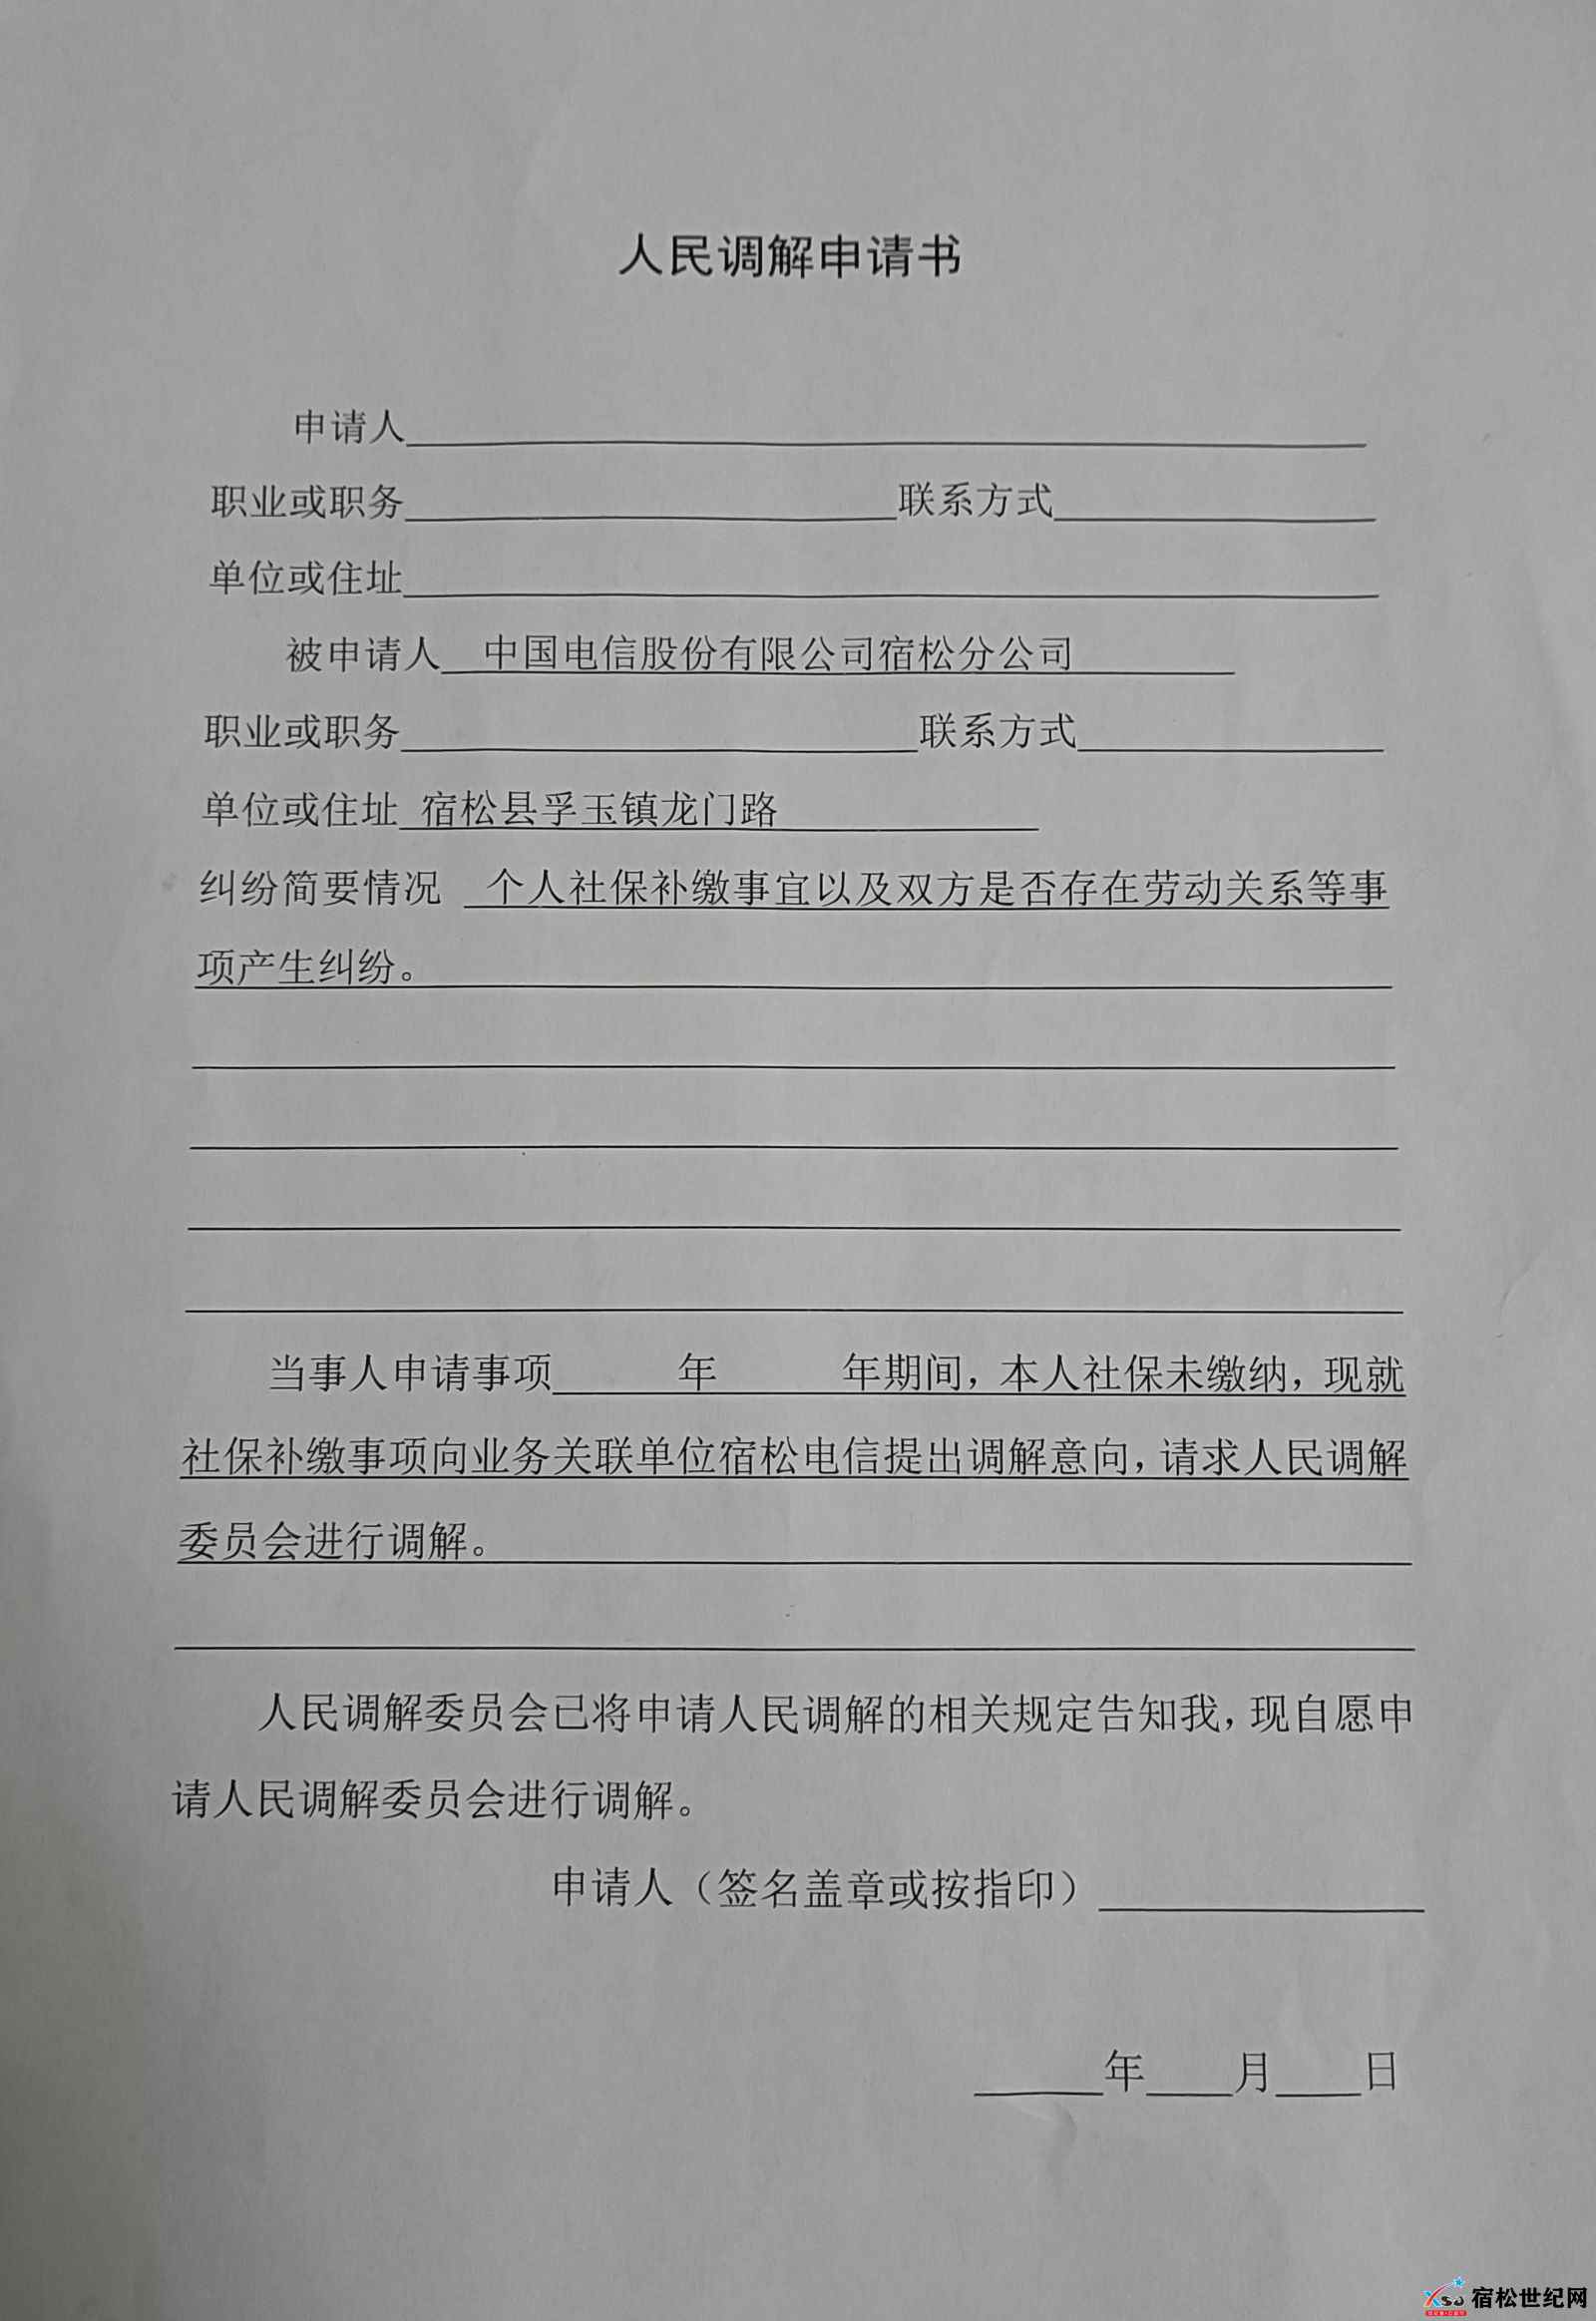 人民调解申请书
申请人
职业或职务 联系方式
单位或住址
被申请人 中国电信股份有限公司宿松分公司
职业或职务 联系方式
单位或住址 宿松县孚玉镇龙门路
纠纷简要情况 个人社保补缴事宜以及双方是否存在劳动关系等事
项产生纠纷。
当事人申请事项 年 年期间，本人社保未缴纳，现就
社保补缴事项向业务关联单位宿松电信提出调解意向，请求人民调解
委员会进行调解。
人民调解委员会已将申请人民调解的相关规定告知我，现自愿申
请人民调解委员会进行调解。
申请人（签名盖章或按指印）
年 月 日
宿松世纪网